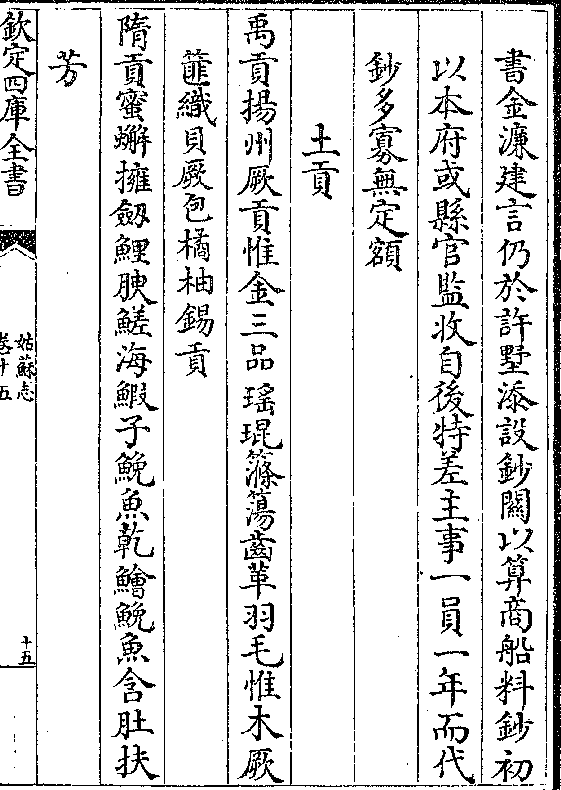 書金濂建言仍於許墅添設鈔關以算商船料鈔初
以本府或縣官監收自後特差主事一員一年而代
鈔多寡無定額
土貢
禹貢揚州厥貢惟金三品瑤琨篠簜齒革羽毛惟木厥
篚織貝厥包橘柚錫貢
隋貢蜜蠏擁劒鯉腴鮺海鰕子鮸魚乾鱠鮸魚含肚扶
芳
欽定四庫全書
姑蘇志
卷十五
十五